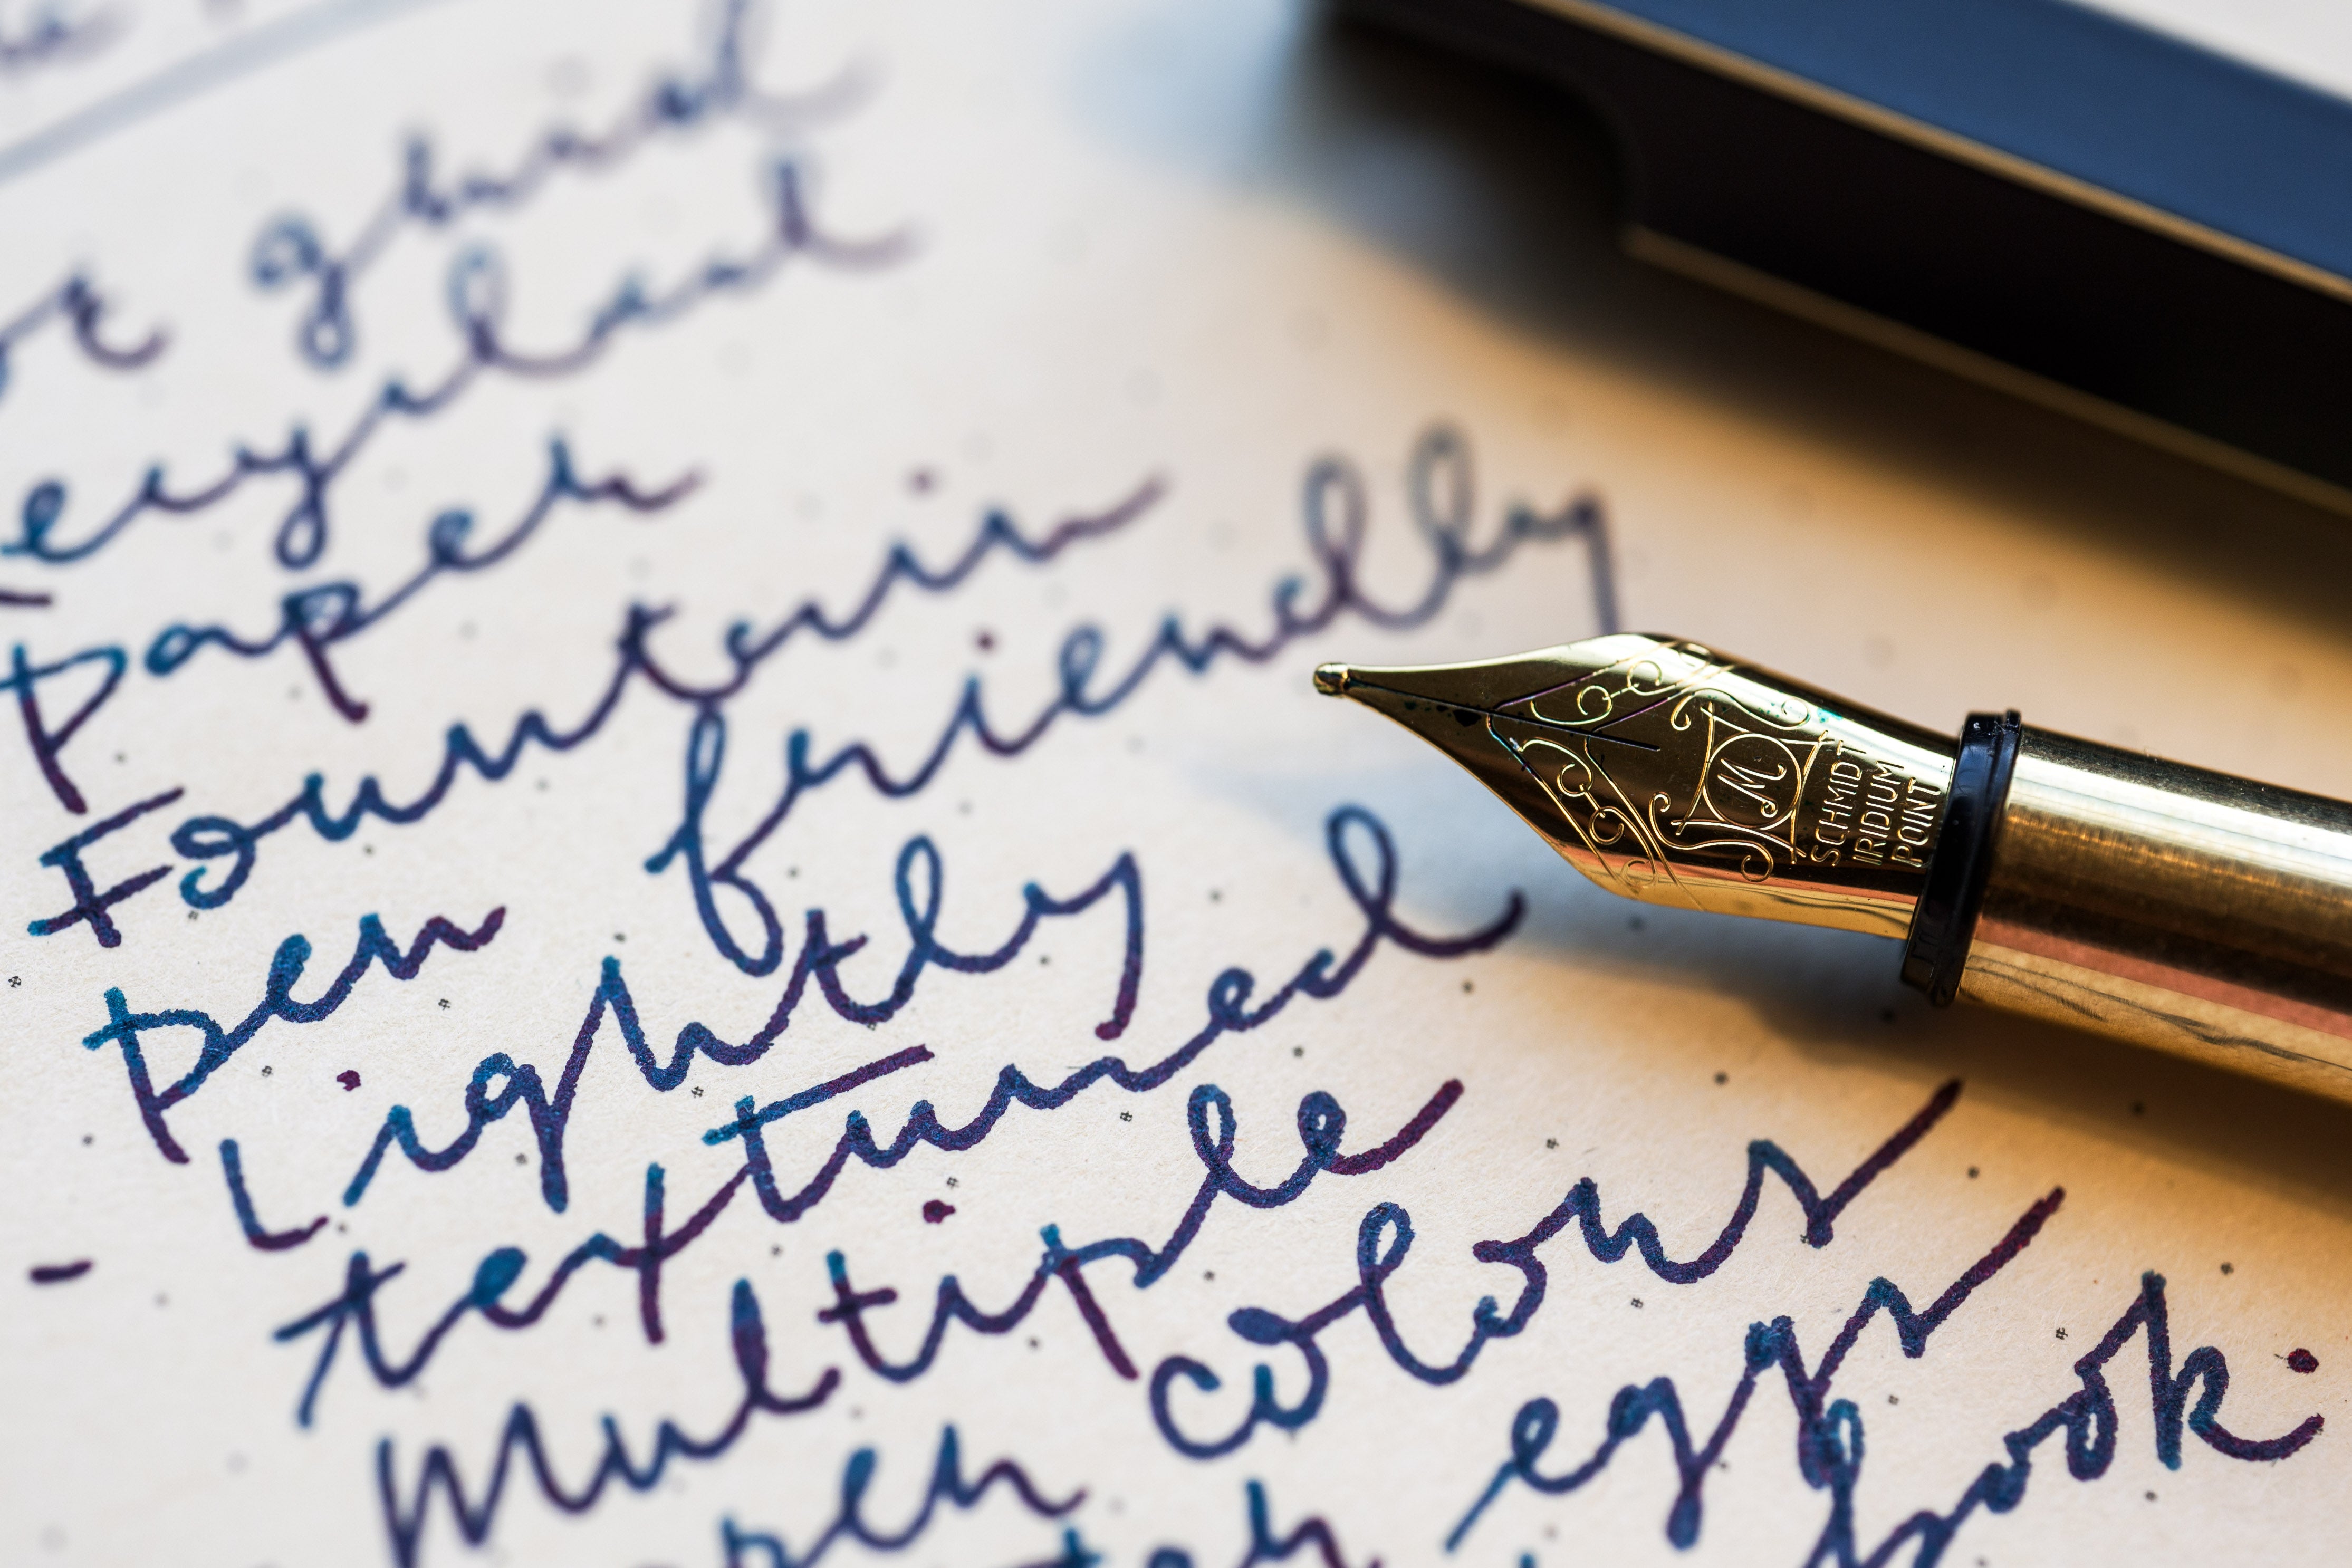 or grid
ecycled
paper
Fountain
pen friendly
- Lightly
textured
- Multiple
paper colours
eggs
book.
M
SCHMIDT
IRIDIUM
POINT